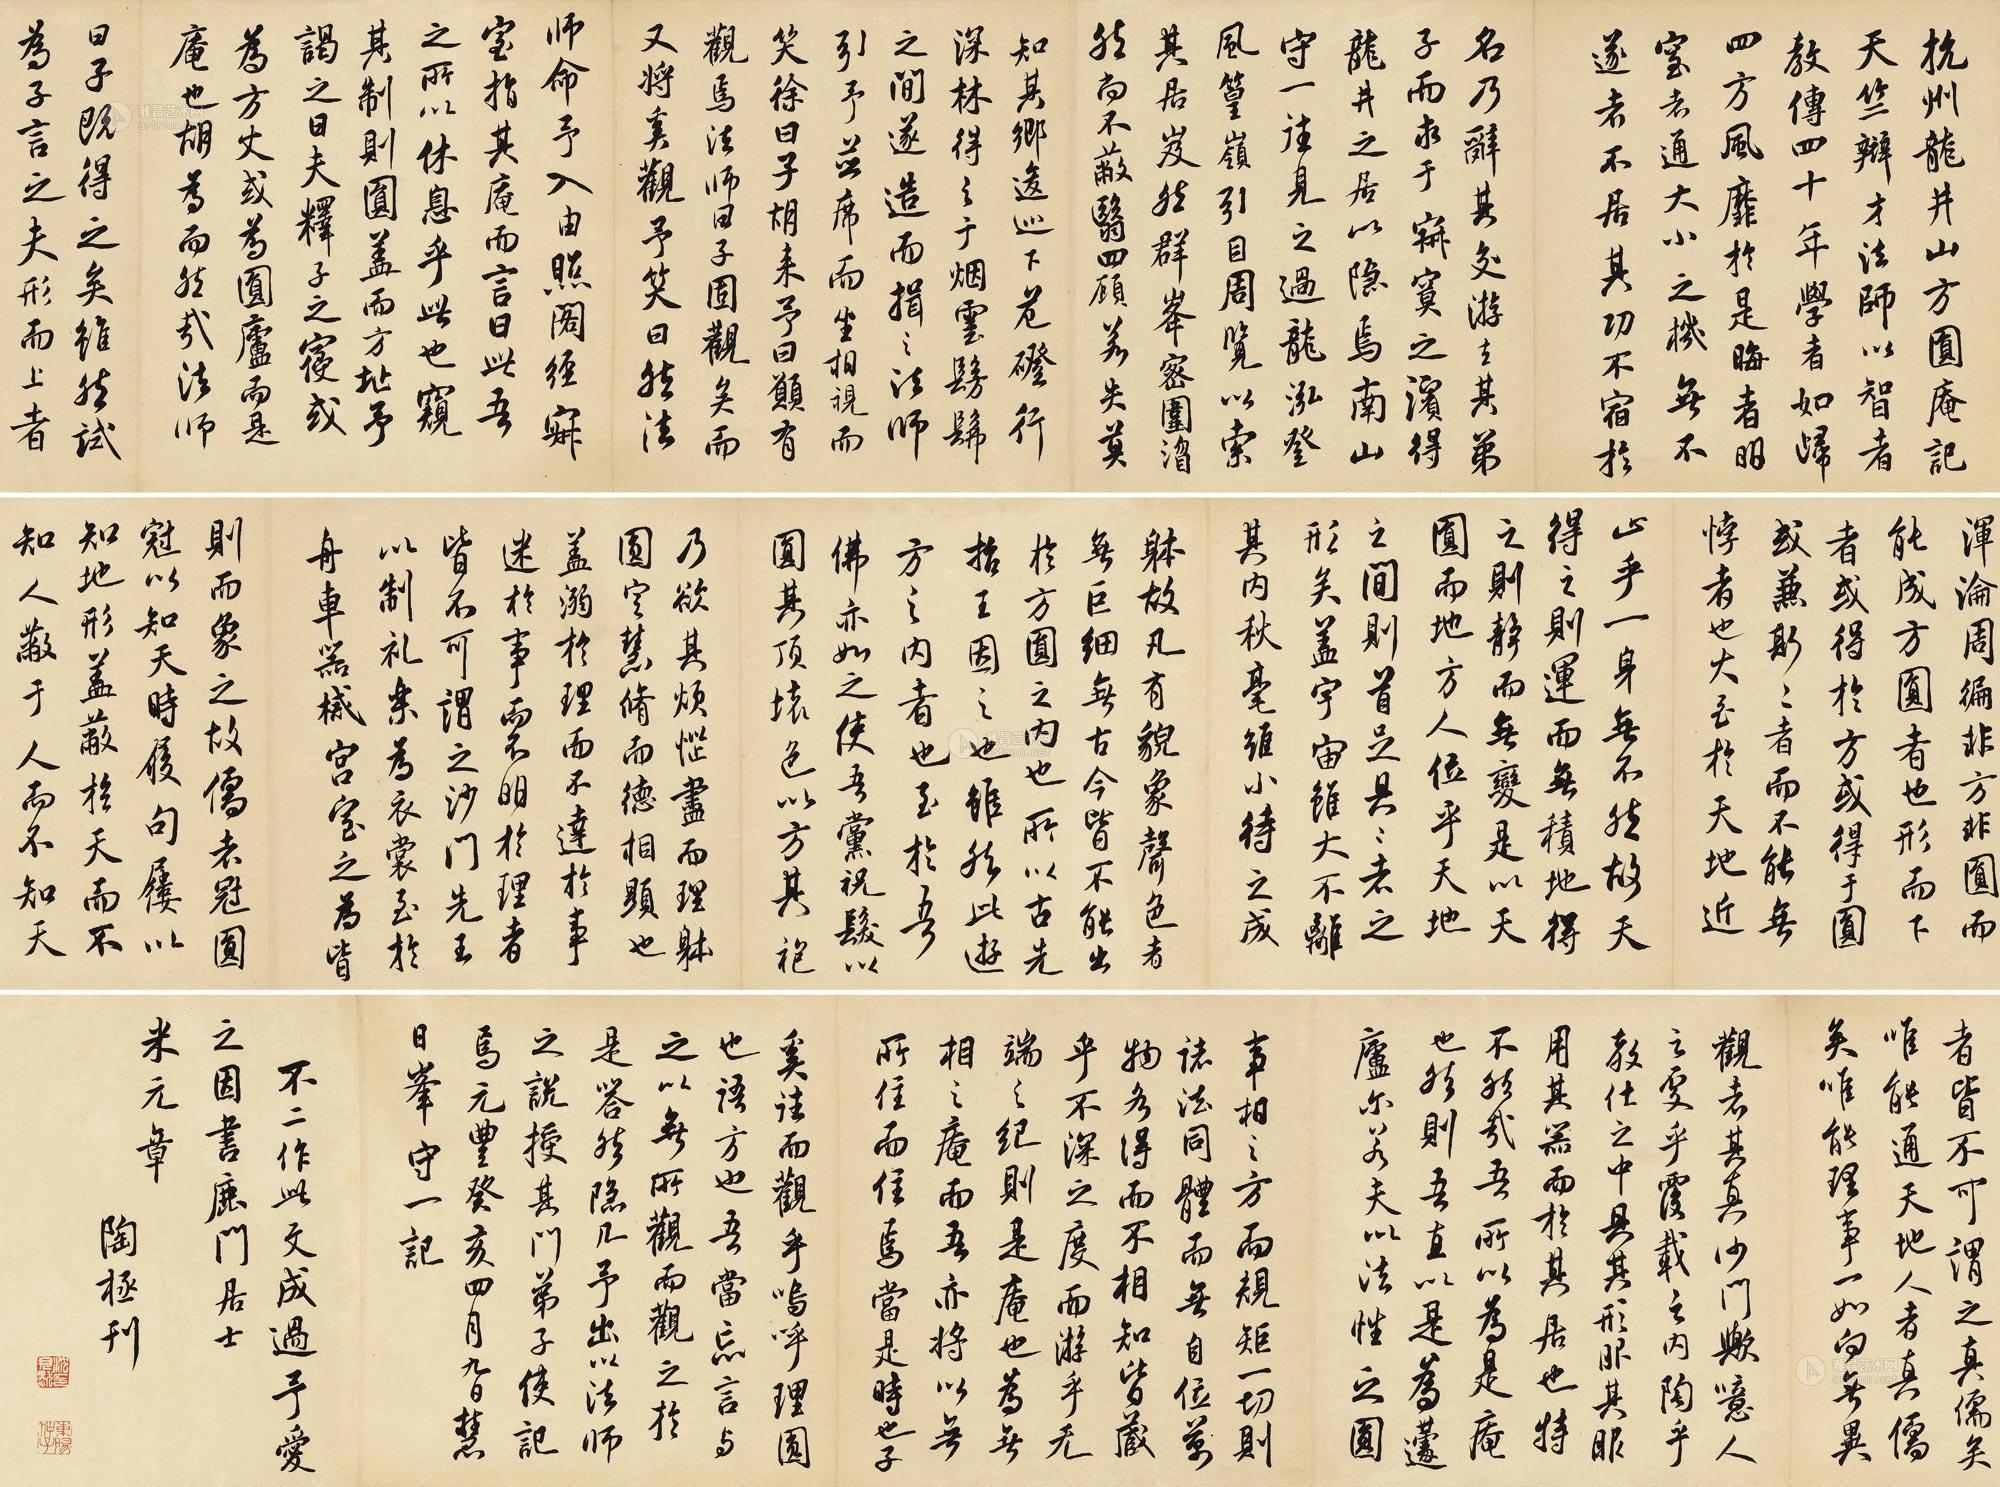 杭州龍井山方圓庵記
天竺辯才法師以智者
教傳四十年學者如歸
四方風靡於是晦者明
窒者通大小之機無不
遂者不居其功不宿於
名乃辭其交游去其弟
子而求于寂寞之濱得
龍井之居以隱焉南山
守一往見之過龍泓登
風篁嶺引目周覽以索
其居岌然群峯密圍溶
然尚不蔽翳四顧若失莫
知其鄉逡巡下危磴行
深林得之于烟雲髣髴
之間遂造而揖之法師
引予並席而坐相視而
笑徐曰子胡来予曰願有
觀焉法師曰子固觀矣而
又將奚觀予笑曰然法
師命予入由照閣經寂
室指其庵而言曰此吾
之所以休息乎此也窺
其制則圓盖而方址予
謁之曰夫釋子之寝或
為方丈或為圓廬而是
庵也胡為而然哉法師
曰子既得之矣雖然試
為子言之夫形而上者
渾淪周徧非方非圓而
能成方圓者也形而下
者或得於方或得于圓
或兼斯二者而不能無
悖者也大至於天地近
止乎一身無不然故天
得之則運而無積地得
之則静而無變是以天
圓而地方人位乎天地
之間則首足具二者之
形矣盖宇宙雖大不離
其内秋毫雖小待之成
躰故凡有貌象聲色者
無巨細無古今皆不能出
於方圓之内也所以古先
哲王因之也雖然此遊
方之内者也至於吾
佛亦如之使吾黨祝髮以
圓其頂壊色以方其袍
乃欲其煩惱盡而理躰
圓定慧脩而德相顯也
盖溺於理而不達於事
迷於事而不明於理者
皆不可謂之沙門先王
以制礼樂為衣裳至於
舟車器械宫室之為皆
則而象之故儒者冠圓
冠以知天時履句屨以
知地形盖蔽於天而不
知人蔽于人而不知天
者皆不可謂之真儒矣
唯能通天地人者真儒
矣唯能理事一如向無異
觀者其真沙門歟噫人
之處乎覆載之内陶乎
教化之中具其形服其服
用其器而於其居也特
不然哉吾所以為是庵
也然則吾直以是為蘧
廬尔若夫以法性之圓
事相之方而規矩一切則
諸法同體而無自位萬
物各得而不相知皆藏
乎不深之度而游乎无
端之紀則是庵也為無
相之庵而吾亦將以無
所住而住焉當是時也子
奚往而觀乎嗚呼理圓
也語方也吾當忘言與
之以無所觀而觀之於
是嗒然隱几予出以法師
之説授其門弟子使記
焉元豐癸亥四月九日慧
日峯守一記
不二作此文成過予愛
之因書鹿門居士
米元章
陶拯刊